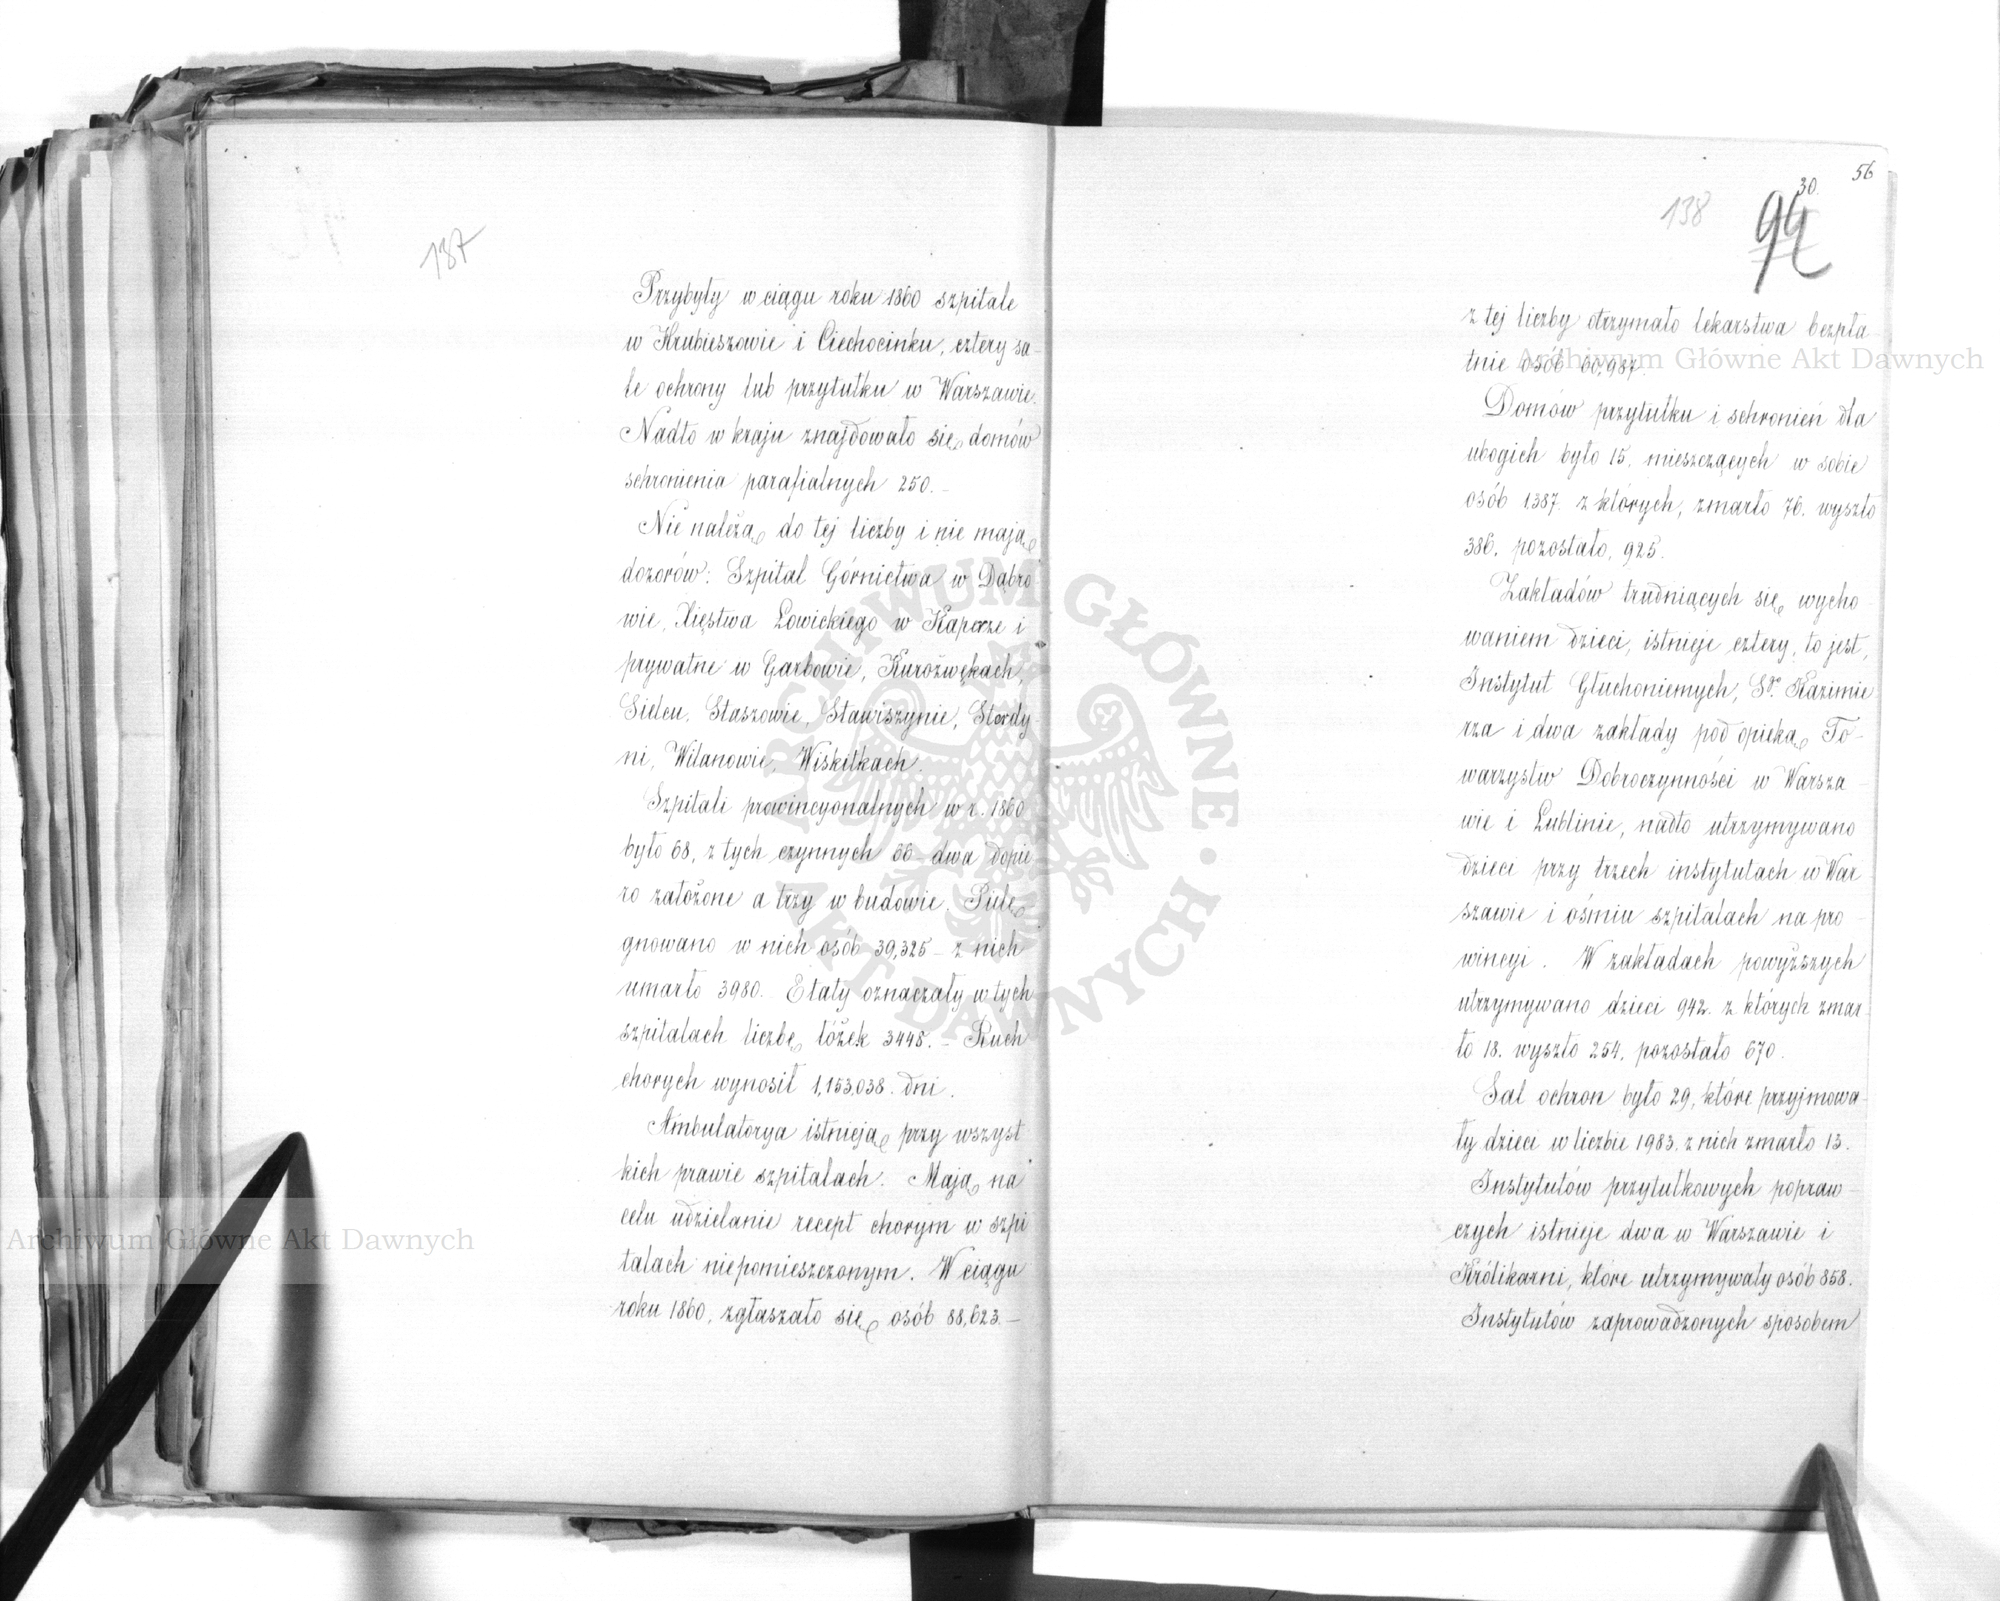 137
Przybyły w ciągu roku 1860 szpitale
w Hrubieszowie i Ciechocinku, cztery sa-
le ochrony lub przytułku w Warszawie.
Nadto w kraju znajdowało się domów
schronienia parafialnych 250. –
Nie należą do tej liczby i nie mają
dozorów: Szpital Górnictwa w Dąbro-
wie, Xięstwa Łowickiego w Kaperze i
prywatne w Garbowie, Kurozwękach,
Sielcu, Staszowie, Stawiszynie, Sterdy-
ni, Wilanowie, Wiskitkach.
Szpitali prowincyonalnych w r. 1860
było 68, z tych czynnych 66 – dwa dopie
ro założone a trzy w budowie. Pielę
gnowano w nich osób 39,325 – z nich
umarło 3980. Etaty oznaczały w tych
szpitalach liczbę łóżek 3448. – Ruch
chorych wynosił 1,153,038. dni.
Ambulatorya istnieją przy wszyst
kich prawie szpitalach. Mają na
celu udzielanie recept chorym w szpi
talach niepomieszczonym. W ciągu
roku 1860, zgłaszało się osób 88,623. –
56
30.
138
z tej liczby otrzymało lekarstwa bezpła-
tnie osób 60,987.
Domów przytułku i schronień dla
ubogich było 15, mieszczących w sobie
osób 1,387. z których, zmarło 76. wyszło
386, pozostało, 925.
Zakładów trudniących się wycho
waniem dzieci, istnieje cztery, to jest,
Instytut Głuchoniemych, Sgo Kazimie
rza i dwa zakłady pod opieką To-
warzystw Dobroczynności w Warsza-
wie i Lublinie, nadto utrzymywano
dzieci przy trzech instytutach w War
szawie i ośmiu szpitalach na pro-
wincyi. W zakładach powyższych
utrzymywano dzieci 942. z których zmar-
ło 18. wyszło 254, pozostało 670.
Sal ochron było 29, które przyjmowa-
ły dzieci w liczbie 1983. z nich zmarło 13.
Instytutów przytułkowych popraw-
czych istnieje dwa w Warszawie i
Królikarni, które utrzymywały osób 858.
Instytutów zaprowadzonych sposobem
Archiwum Główne Akt Dawnych
Archiwum Główne Akt Dawnych
ARCHIWUM GŁÓWNE • AKT DAWNYCH •